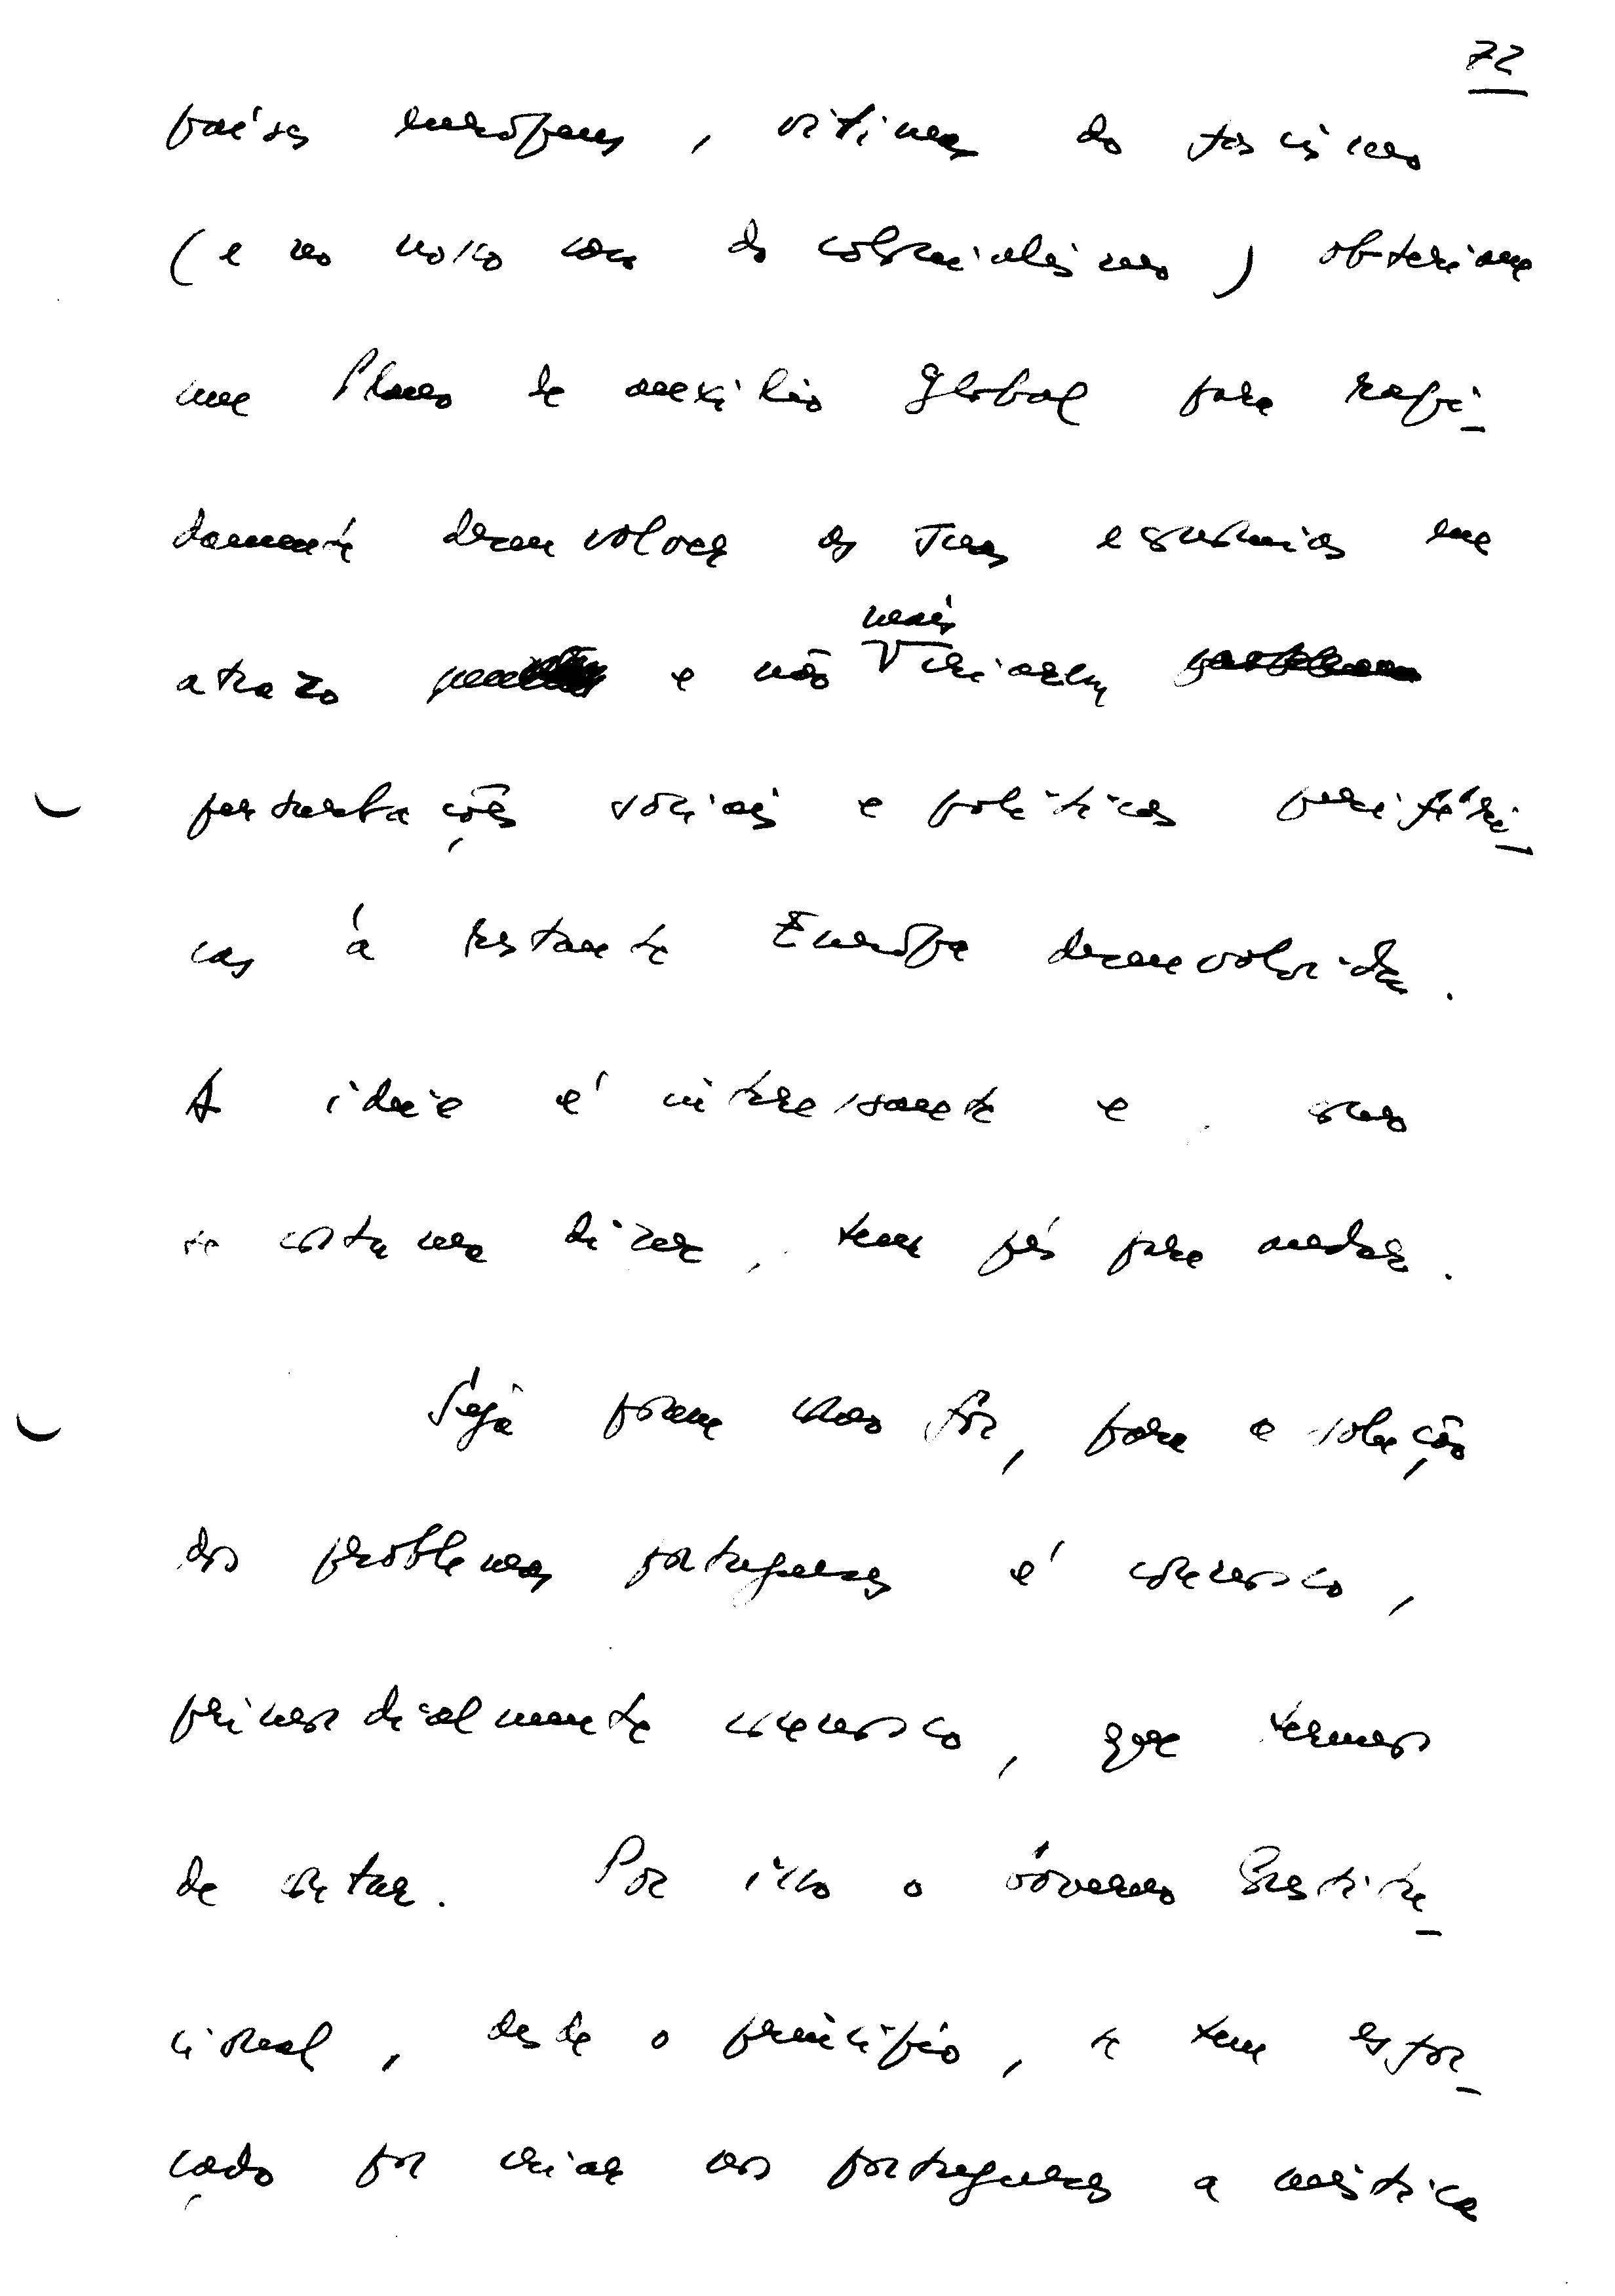 72
países europeus, vítimas do fascismo
(e no nosso caso do colonialismo) obteriam
um Plano de auxílio global para rapi-
damente desenvolver as suas economias em
atrazo e não mais criarem
perturbações sociais e políticas periféri-
cas à restante Európa desenvolvida.
A ideia é interessante e, como
se costuma dizer, tem pés para andar.
Seja porem como fôr, para a solução
dos problemas portugueses é connosco,
primordialmente connosco, que temos
de contar. Por isso o Govêrno Constitu-
cional, desde o princípio, se tem esfor-
çado por criar nos portugueses a mística